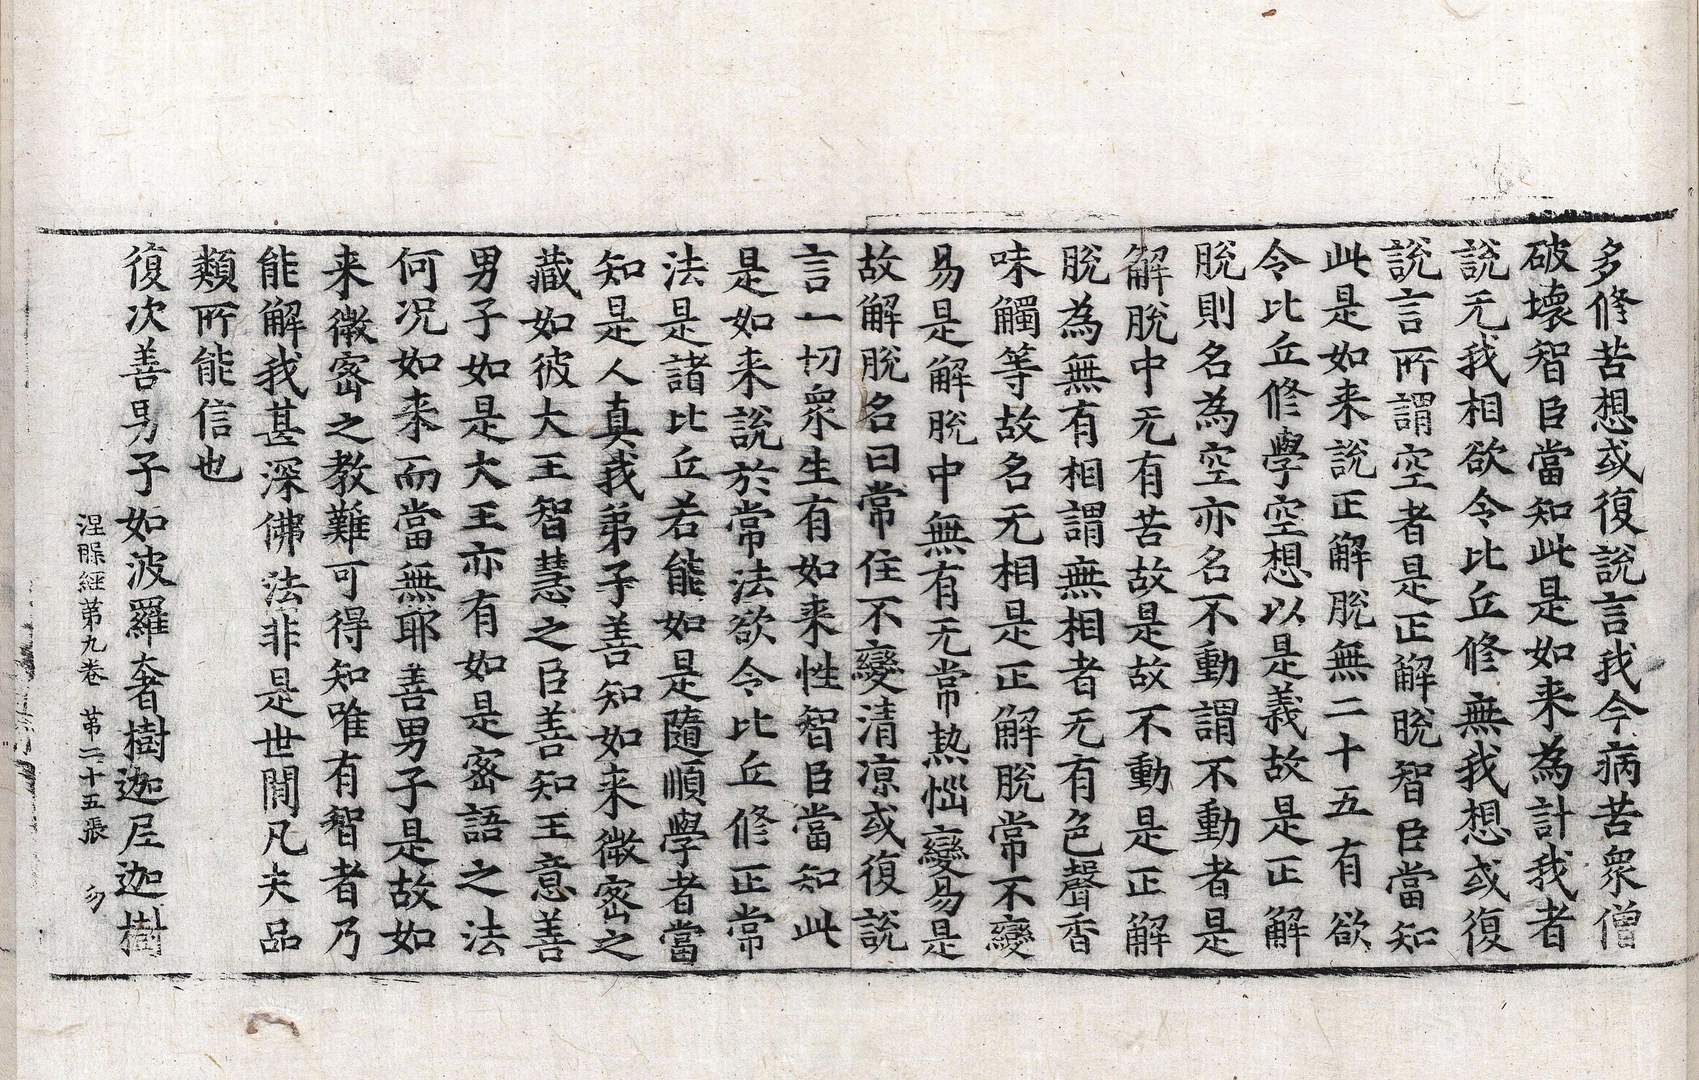 多修苦想或復說言我今病苦衆僧
破壞智臣當知此是如来為計我者
說无我相欲令比丘修無我想或復
說言所謂空者是正解脫智臣當知
此是如来說正解脫無二十五有欲
令比丘修學空想以是義故是正解
脫則名為空亦名不動謂不動者是
解脫中无有苦故是故不動是正解
脫為無有相謂無相者无有色聲香
味觸等故名无相是正解脫常不變
易是解脫中無有无常熱惱變易是
故解脫名曰常住不變清凉或復說
言一切衆生有如来性智臣當知此
是如来說於常法欲令比丘修正常
法是諸比丘若能如是隨順學者當
知是人真我弟子善知如来微密之
藏如彼大王智慧之臣善知王意善
男子如是大王亦有如是密語之法
何况如来而當無耶善男子是故如
来微密之教難可得知唯有智者乃
能解我甚深佛法非是世間凡夫品
類所能信也
復次善男子如波羅奢樹迦尼迦樹
涅槃經第九卷 第二十五張